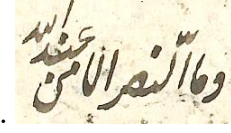 وما النصر الا من عند الله